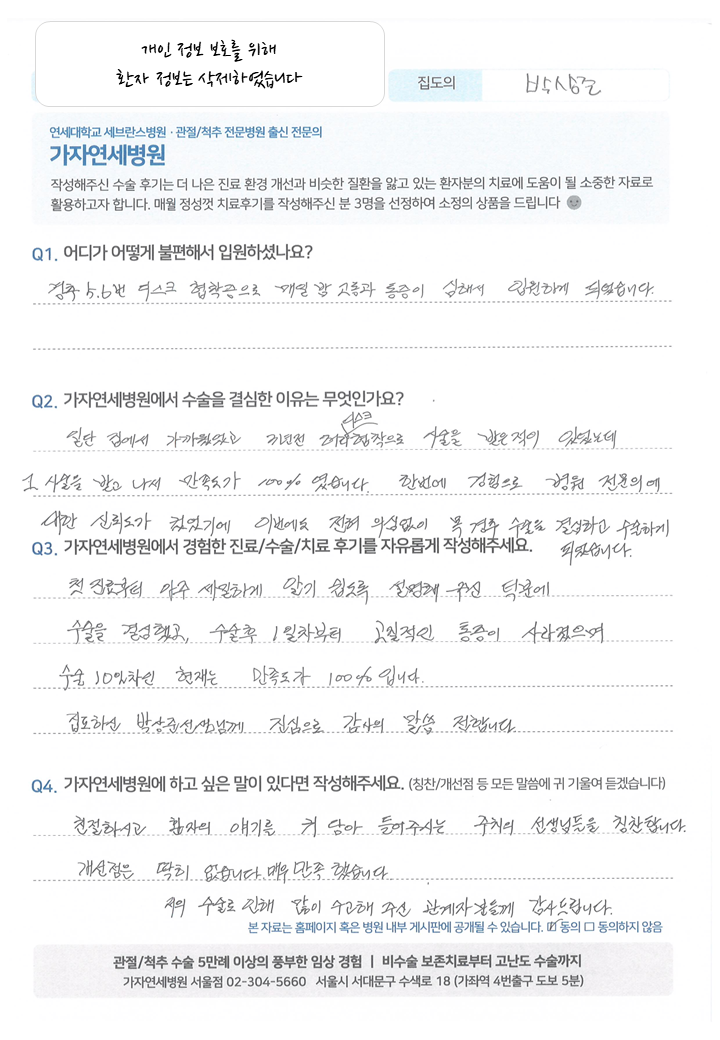 개인 정보 보호를 위해
환자 정보는 삭제하였습니다
집도의 박상준
연세대학교 세브란스병원 · 관절/척추 전문병원 출신 전문의
가자연세병원
작성해주신 수술 후기는 더 나은 진료 환경 개선과 비슷한 질환을 앓고 있는 환자분의 치료에 도움이 될 소중한 자료로
활용하고자 합니다. 매월 정성껏 치료후기를 작성해주신 분 3명을 선정하여 소정의 상품을 드립니다
Q1. 어디가 어떻게 불편해서 입원하셨나요?
경추 5.6번 디스크 협착증으로 매일 밤 고통과 통증이 심해서 입원하게 되었습니다.
Q2. 가자연세병원에서 수술을 결심한 이유는 무엇인가요?
디스크
일단 집에서 가까웠었고 허리협착으로 시술을 받은적이 있었는데
그 시술을 받고 나서 만족도가 100% 였습니다. 한번에 경험으로 병원 전문의에
대한 신뢰도가 컸었기에 이번에도 전혀 의심없이 목 경추 수술을 결심하고 수술하게
되었습니다.
Q3. 가자연세병원에서 경험한 진료/수술/치료 후기를 자유롭게 작성해주세요.
첫 진료부터 아주 세밀하게 알기 쉽도록 설명해 주신 덕분에
수술을 결심했고, 수술후 1일차부터 고질적인 통증이 사라졌으며
수술 10일차인 현재는 만족도가 100% 입니다.
집도하신 박상준선생님께 진심으로 감사의 말씀 전합니다.
Q4. 가자연세병원에 하고 싶은 말이 있다면 작성해주세요. (칭찬/개선점 등 모든 말씀에 귀 기울여 듣겠습니다)
친절하시고 환자의 얘기를 귀 담아 들어주시는 주치의 선생님들을 칭찬합니다.
개선점은 딱히 없습니다. 매우 만족 했습니다
저의 수술로 인해 많이 수고해 주신 관계자분들께 감사드립니다.
본 자료는 홈페이지 혹은 병원 내부 게시판에 공개될 수 있습니다. ☑ 동의 ☐ 동의하지 않음
관절/척추 수술 5만례 이상의 풍부한 임상 경험 | 비수술 보존치료부터 고난도 수술까지
가자연세병원 서울점 02-304-5660 서울시 서대문구 수색로 18 (가좌역 4번출구 도보 5분)